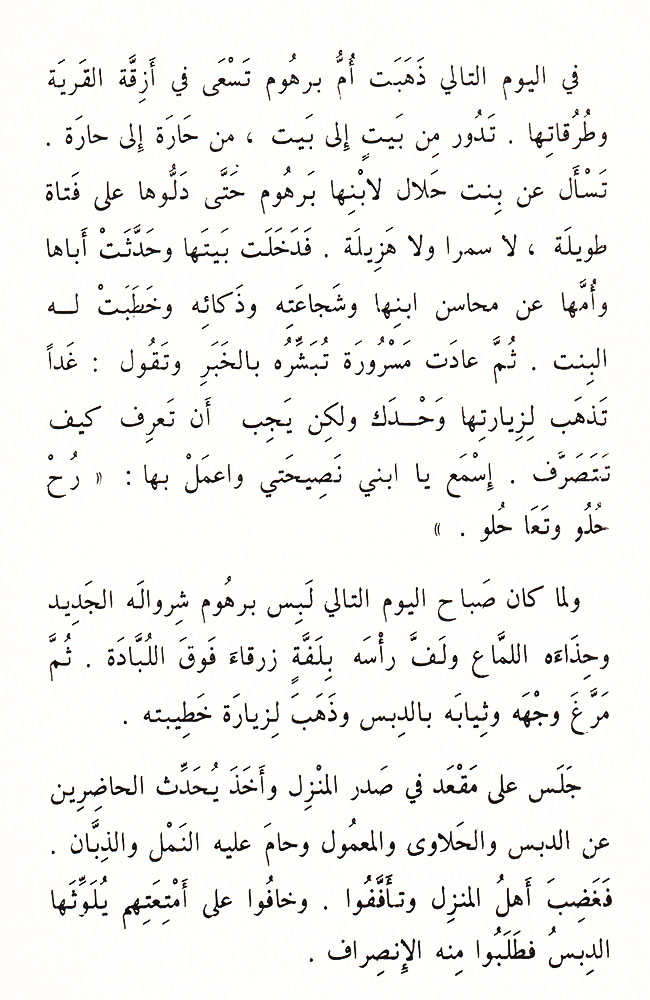 في اليوم التالي ذَهَبَت أُمُّ برهُوم تَسْعَى في أَزِقَّة القَريَة
وطُرُقاتِها . تَدُور مِن بَيتٍ إِلى بَيت ، من حَارَة إِلى حارَة .
تَسْأَل عن بِنت حَلال لابْنِها بَرهُوم حَتَّى دَلُّوها على فَتاة
طويلَة ، لا سمرا ولا هَزِيلَة . فَدَخَلَت بَيتَها وحَدَّثَتْ أَباها
وأُمَّها عن محاسن ابنِها وشَجاعَتِه وذَكائِه وخَطَبَتْ لـه
البِنت . ثُمَّ عادَت مَسْرُورَة تُبَشِّرُه بالخَبَرِ وتَقُول : غَداً
تَذهَب لِزِيارتِها وَحْـدَك ولكِن يَجِب أَن تَعرِف كيف
تَتَصَرَّف . إِسْمَع يا ابني نَصِيحَتي واعمَلْ بها : « رُحْ
حُلُو وتَعَا حُلو . »
ولما كان صَباح اليوم التالي لَبِس برهُوم شِروالَه الجَدِيد
وحِذَاءَه اللمَّاع ولَفَّ رأْسَه بِلَفَّةٍ زرقاءَ فَوقَ اللُبَّادَة . ثُمَّ
مَرَّغَ وجْهَه وثِيابَه بالدِبس وذَهَبَ لِزيارَة خَطِيبته .
جَلَس على مَقْعَد في صَدر المنْزِل وأَخَذَ يُحَدِّث الحاضِرِين
عن الدبس والحَلاوى والمعمُول وحامَ عليه النَمْل والذِبَّان .
فَغَضِبَ أَهلُ المنزِل وتأَفَّفُوا . وخافُوا على أَمْتِعَتِهم يُلَوِّثَها
الدِبسُ فطَلَبُوا مِنه الإِنصِراف .